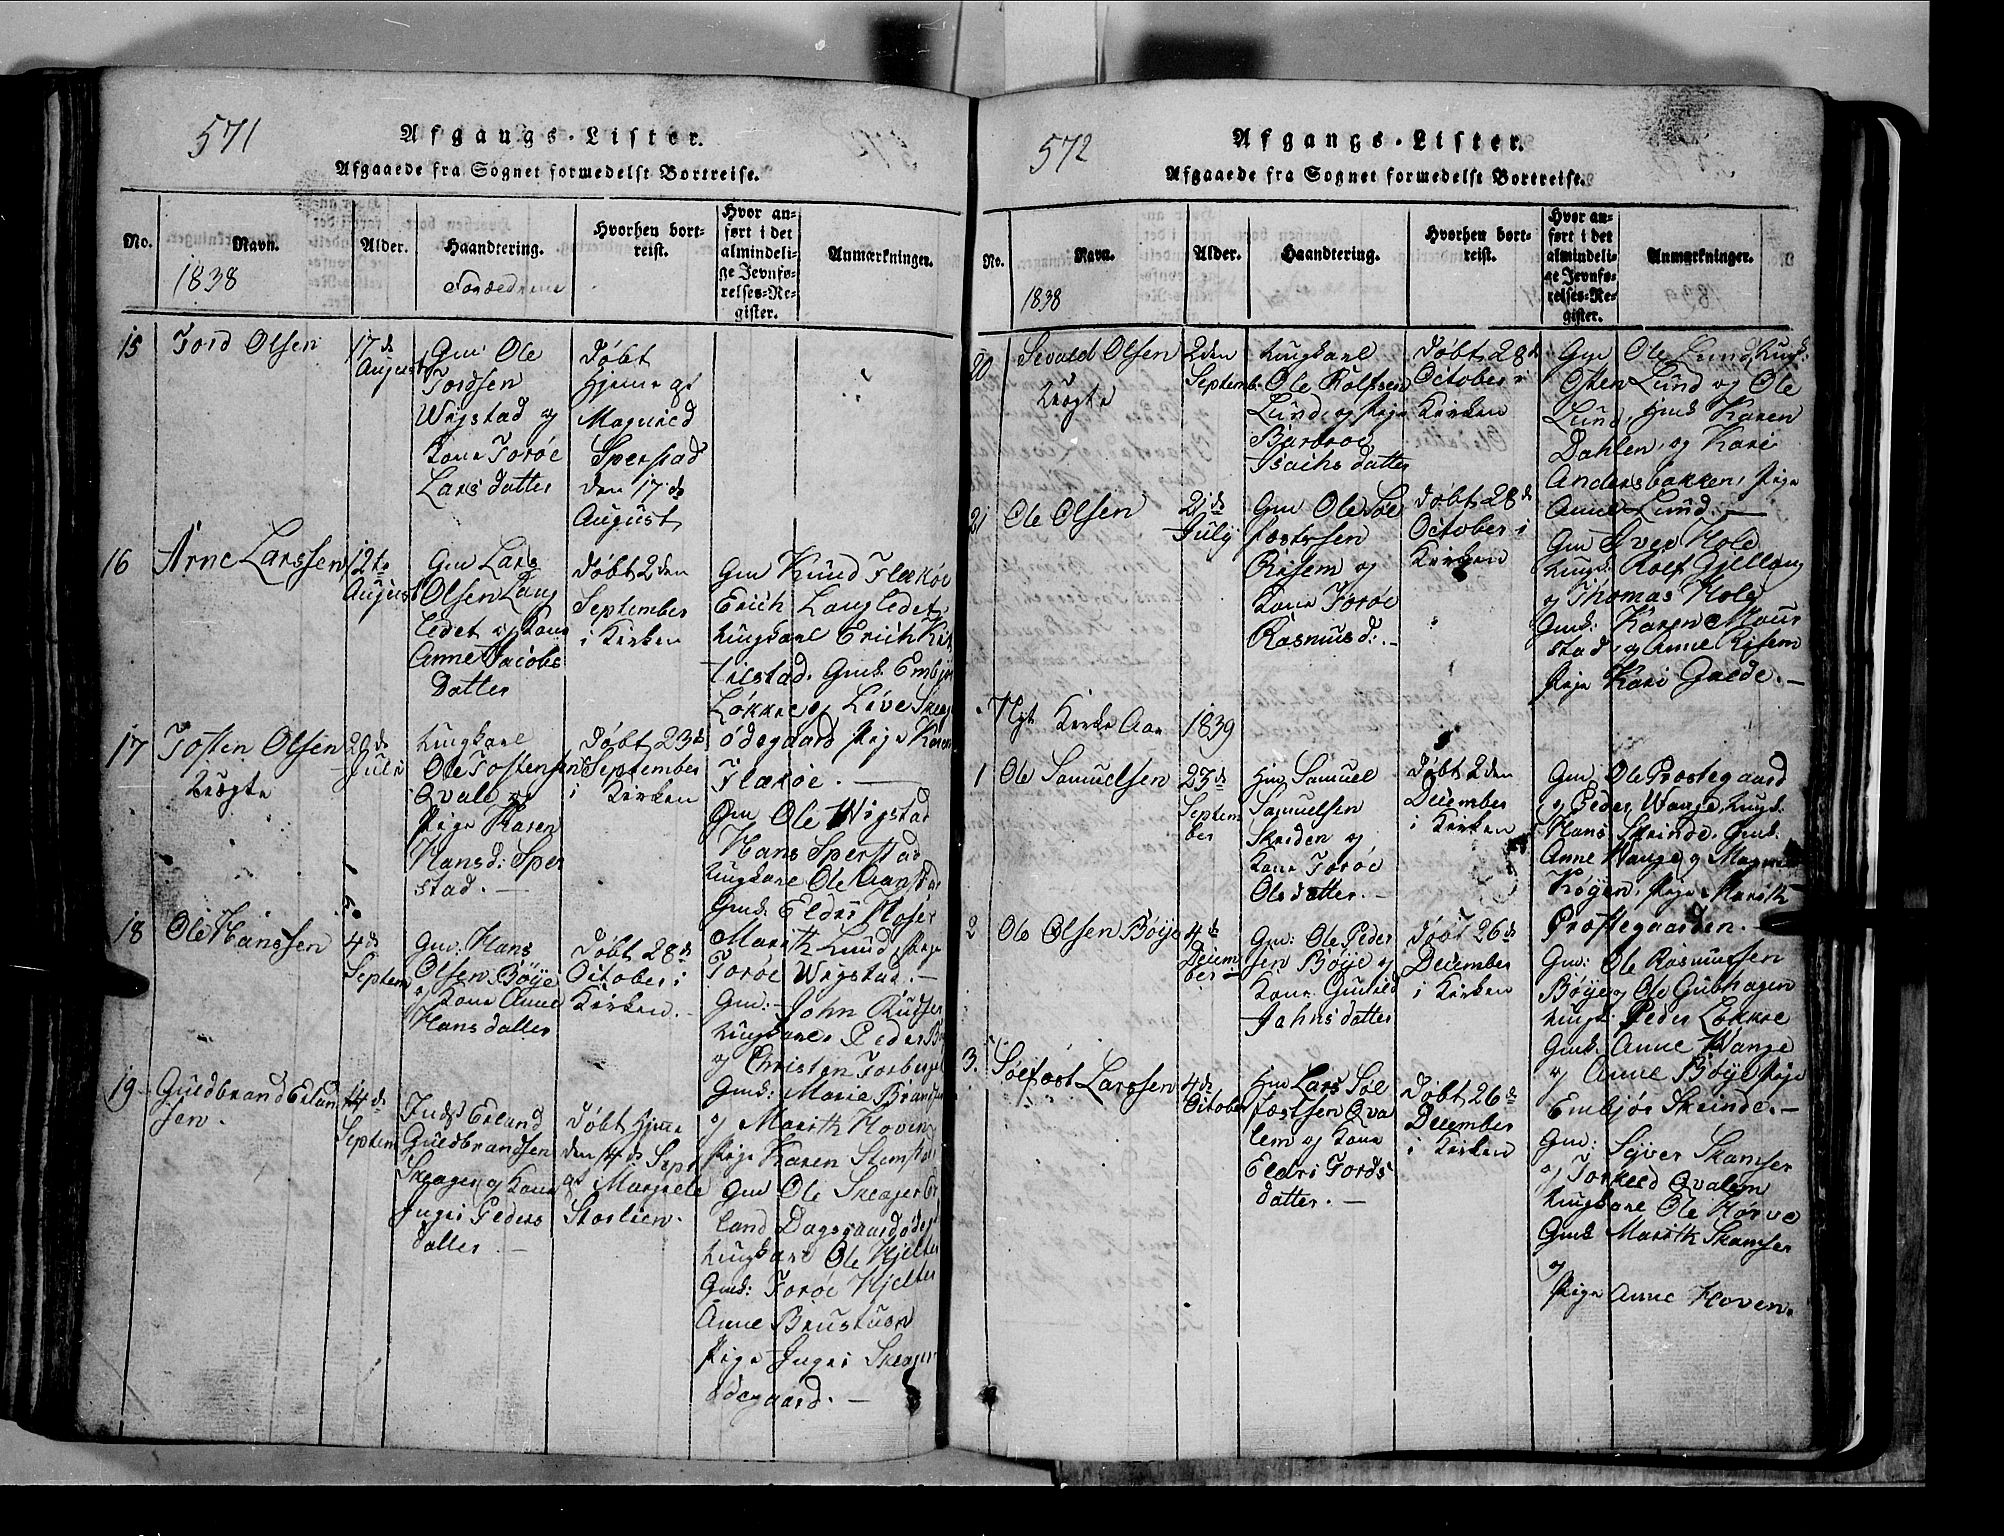 571
Afgangs-Lister.
Afgaaede fra Sognet formedelst Bortreise.
No.
Navn.
1838
Alder.
Haandtering.
Forældrene
Hvorhen bort-
reist.
Hvor an-
ført i det
almindeli-
ge Jevnfø-
relses-Re-
gister.
Anmærkninger.
15
Tord Olsen
17de
August
Gm: Ole
Tordsen
Wigstad og
Kone Toroe
Larsdatter
Døbt
Hjeme af
Magnild
Sperstad
den 17de
August
16
Arne Larssen
12te
August
Gm Lars
Olsen Lang
ledet og Kone
Anne Jacobs
Datter
Døbt 2den
September
i Kirken
Gm Knud Flækøe
Erich Langledet
Ungkarl Erich
tilstad. Gmk. Embjør
Løkkre og Live
ødegaard Pige Karen
Flækøe.
17
Tosten Olsen
Uægte
20de
Juli
Ungkarl
Ole Tostensen
Qvale og
Pige Karen
Hansd: Sper
stad.
Døbt 23de
September
i Kirken
Gm Ole Wigstad
Hans Sperstad
Ungkarl Ole
Gmk: Eldri
Marith Lund, Pige
Toroe Wigstad.
18
Ole Hanssen
4de
Septem
Gm: Hans
Olsen Bøye
og Kone Anne
Hansdatter
Døbt 28de
October i
Kirken.
Gm: John
Ungkarl Peder
og Christen Torberg
Gmk: Marie
og Marith Hoven
Pige Karen
19
Guldbrand Erland
sen.
14de
Septem
Inds Erland
Guldbrandsen
Skeagen og Kone
Ingri Peders
datter
Døbt Hjeme
den 14de Sept
af Margrete
Storlien.
Gm Ole Skeager
land Dagsgaardødeg
Ungkarl Ole Kjelter
Gmk: Toroe Kjelter
Anne Brustuen
Pige Ingri Skeager
ødegaard.
572
Afgangs-Lister.
Afgaaede fra Sognet formedelst Bortreise.
No.
Navn.
1838
Alder.
Haandtering.
Hvorhen bort-
reist.
Hvor an-
ført i det
almindeli-
ge Jevnfø-
relses-Re-
gister.
Anmærkninger.
20
Sivald Olsen
Uægte
2den
Septemb.
Ungkarl
Ole Rolfsen
Lund, og Pige
Barbroe
Isachsdatter
Døbt 28de
October i
Kirken
Gm Ole Lund, Ungk:
Osten Lund og Ole
Lund, Gmk Karen
Dahlen, og Kari
Andersbakken, Pige
Anne Lund.
21
Ole Olsen
21de
July
Gm Ole Søl
fæstesen
Risem og
Kone Toroe
Rasmusd:
Døbt 28de
October i
Kirken
Gm Iver Hole
Ungk: Rolf Gjellong
og Thomas Hole
Gmk: Karen Maur
stad, og Anne Risem
Pige Kari Gulde.
Nyt Kirke Aar 1839
1
Ole Samuelsen
23de
Septem
ber
Hm Samuel
Samuelsen
Skriden og
Kone Toroe
Olsdatter.
Døbt 2den
December
i Kirken
Gm: Ole Prostegaard
og Peder Wange, Ungk:
Hans Skrinde, Gmk:
Anne Wange og
Krøgen, Pige Marith
Prostegaarden.
2
Ole Olsen Bøye
4de
Decem
ber
Gm: Ole Peder
sen Bøye og
Kone Gunild
Jahnsdatter
Døbt 26de
December
i Kirken
Gm: Ole Rasmussen
Bøye og Ole Gubhagen
Ungk: Peder Løkkre
Gmk: Anne Wange
og Anne Bøye Pige
Embjør Skrinde.
3.
Sølfæst Larssen
4de
October
Hm Lars Søl
fæstsen Qva
lem og Kone
Eldri Tords
datter.
Døbt 26de
December
i Kirken
Gm: Syver Skamser
og Torkeld Qvalem
Ungkarl Ole Horve
Gmk Marith Skamser
og
Pige Anne Hoven.